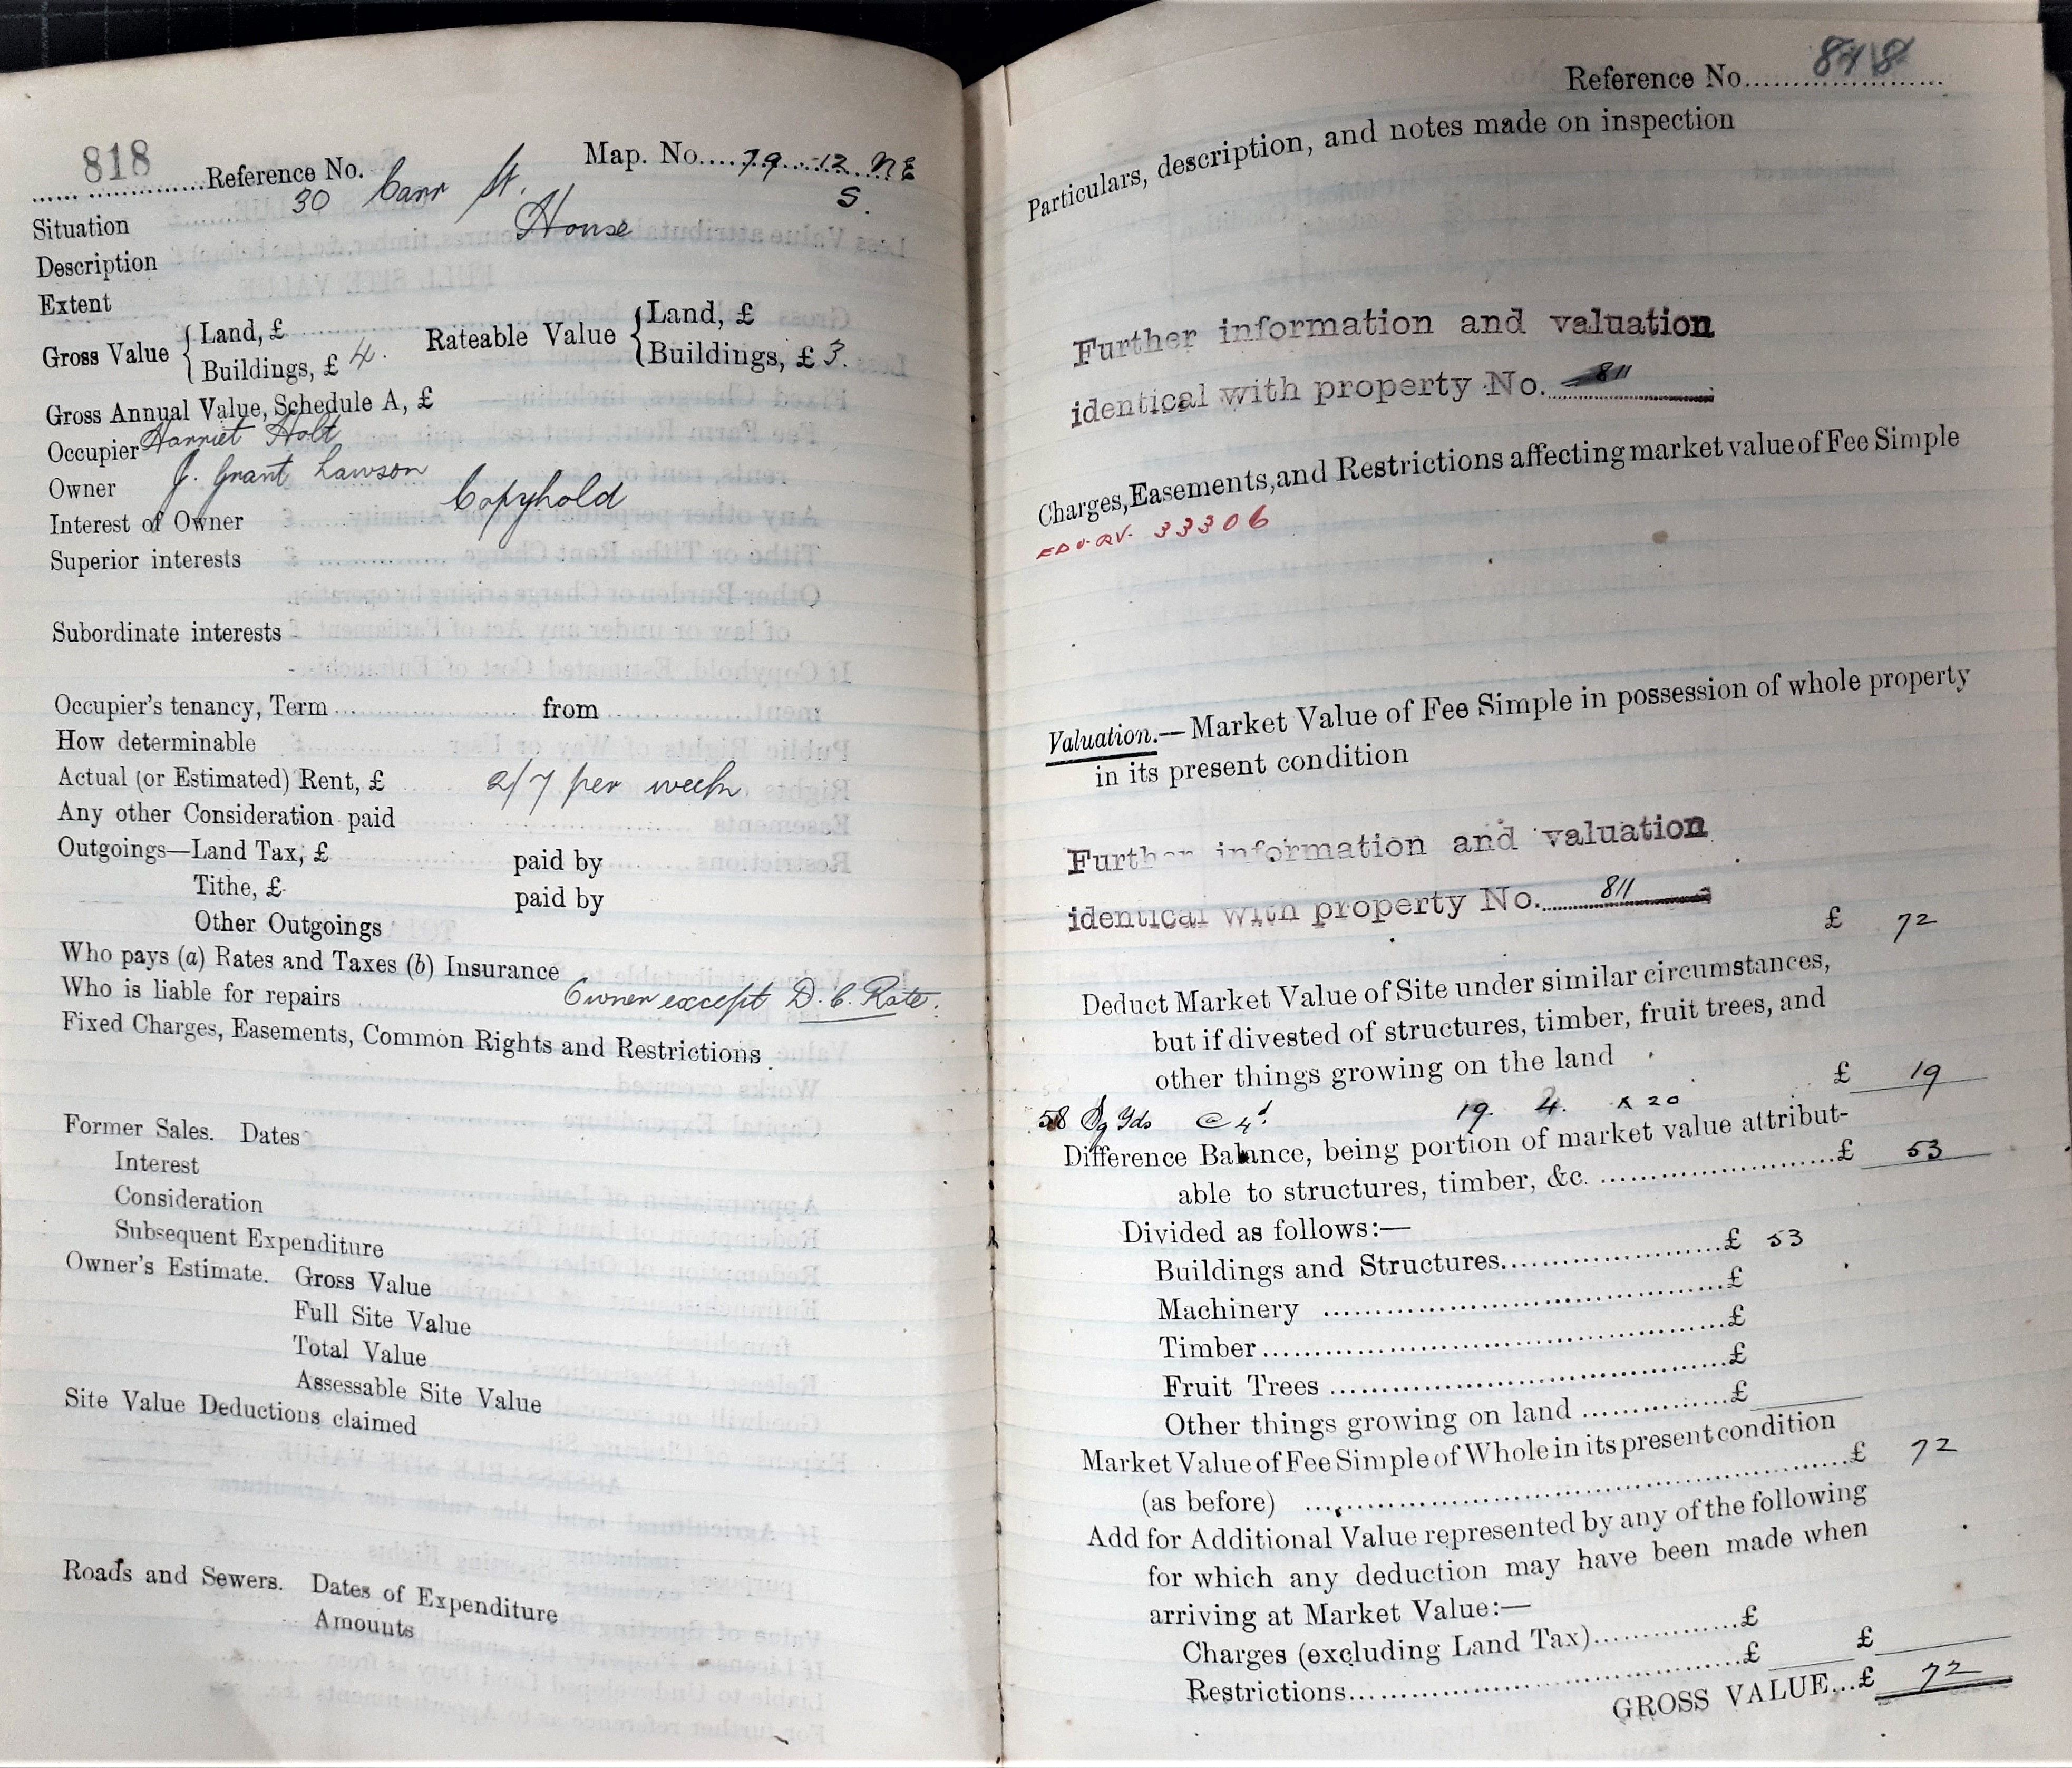 818 Reference No. Map. No. 79.12 NE
S.
Situation 30 Carr St.
Description House
Extent
Gross Value { Land, £
Buildings, £ 4.
Rateable Value { Land, £
Buildings, £ 3.
Gross Annual Value, Schedule A, £
Occupier Harriet Holt
Owner J. Grant Lawson
Interest of Owner Copyhold
Superior interests
Subordinate interests
Occupier's tenancy, Term from
How determinable
Actual (or Estimated) Rent, £ 2/7 per week
Any other Consideration paid
Outgoings—Land Tax, £ paid by
Tithe, £ paid by
Other Outgoings
Who pays (a) Rates and Taxes (b) Insurance
Who is liable for repairs Owner except D. C. Rate.
Fixed Charges, Easements, Common Rights and Restrictions
Former Sales. Dates
Interest
Consideration
Subsequent Expenditure
Owner's Estimate. Gross Value
Full Site Value
Total Value
Assessable Site Value
Site Value Deductions claimed
Roads and Sewers. Dates of Expenditure
Amounts
Reference No. 818
Particulars, description, and notes made on inspection
Further information and valuation
identical with property No. 811
Charges, Easements, and Restrictions affecting market value of Fee Simple
33306
Valuation.—Market Value of Fee Simple in possession of whole property
in its present condition
Further information and valuation
identical with property No. 811
£ 72
Deduct Market Value of Site under similar circumstances,
but if divested of structures, timber, fruit trees, and
other things growing on the land £ 19
58 Sq Yds @ 4d 19. 4. x 20
Difference Balance, being portion of market value attribut-
able to structures, timber, &c. £ 53
Divided as follows:—
Buildings and Structures £ 53
Machinery £
Timber £
Fruit Trees £
Other things growing on land £
Market Value of Fee Simple of Whole in its present condition
(as before) £ 72
Add for Additional Value represented by any of the following
for which any deduction may have been made when
arriving at Market Value:—
Charges (excluding Land Tax) £
Restrictions £ £
GROSS VALUE...£ 72